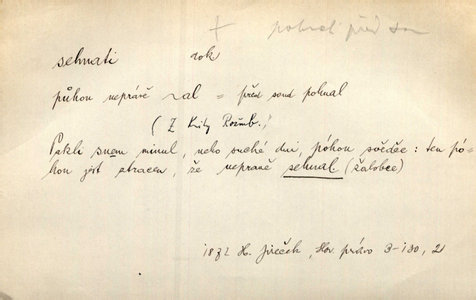 + pohnal před s
sehnati rok
půhon neprávě ~al = před soud pohnal
( Z Knihy Rožmb. )
Pakli snem minul, nebo suché dni, póhon svědče : ten pó-
hon jest ztracen, že nepravě sehnal (žalobce)
1872 H. Jireček, Slov. právo 3-130, 2